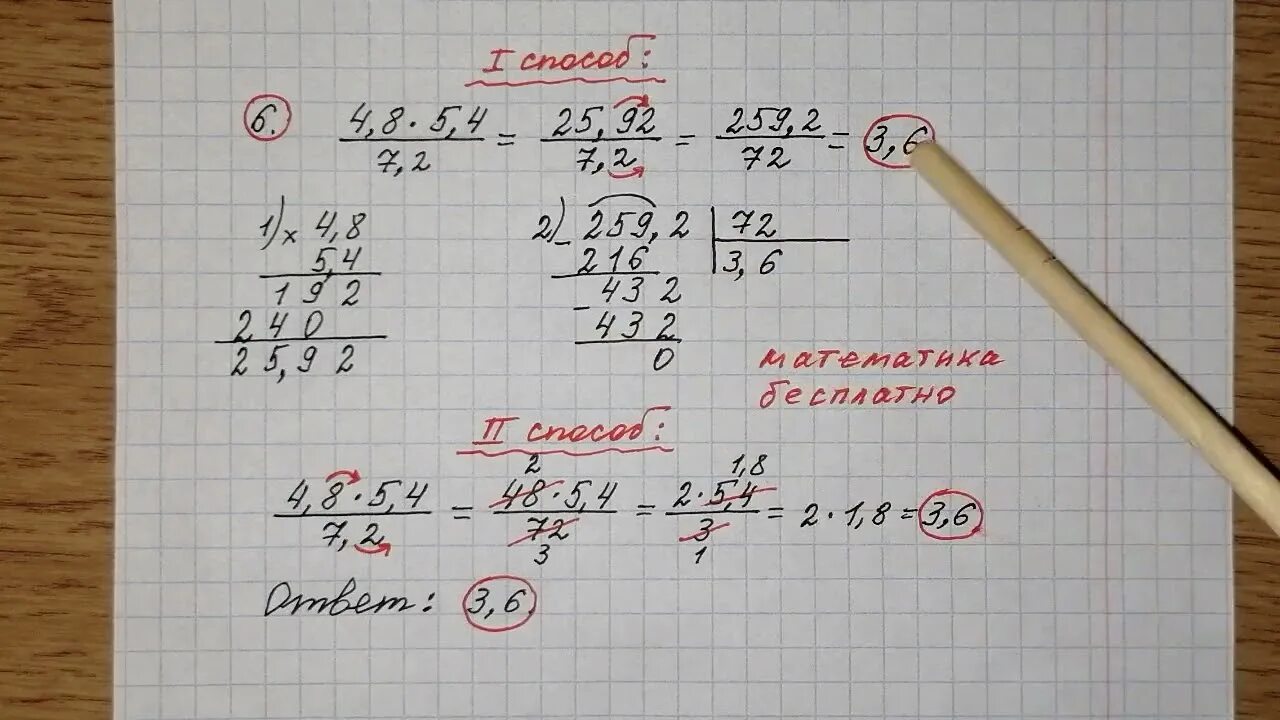 I способ:
6. 4,8 · 5,4 / 7,2 = 25,92 / 7,2 = 259,2 / 72 = 3,6
1) × 4,8
5,4
192
240
25,92
2) − 259,2 | 72
216 | 3,6
− 432
432
0
математика
бесплатно
II способ:
4,8 · 5,4 / 7,2 = 48 · 5,4 / 72 = 2 · 5,4 / 3 = 2 · 1,8 = 3,6
2
3
1,8
1
Ответ: 3,6.